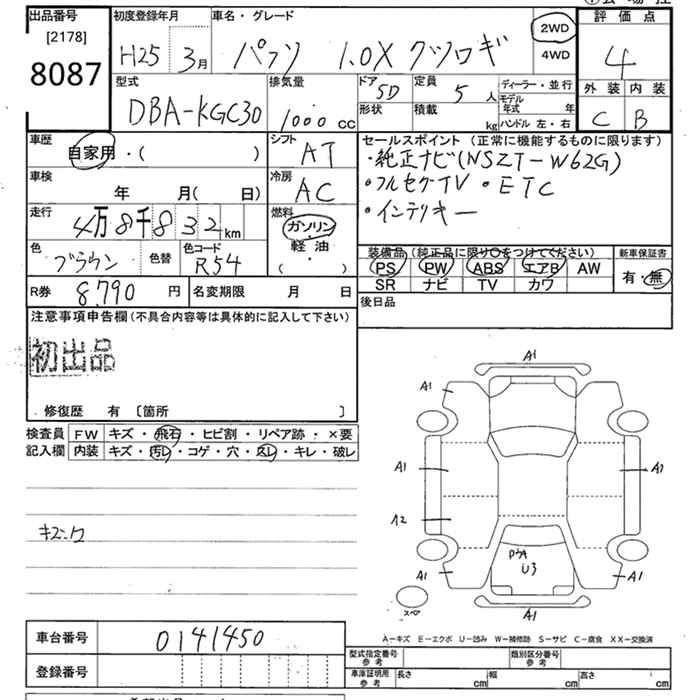 出品番号 初度登録年月 車名・グレード 評価点
[2178]
8087
H25 3月 パッソ 1.0X クツロギ 2WD
4WD
4
型式 排気量 ドア 定員 ディーラー・並行 外装 内装
DBA-KGC30 1000 cc 5D 5人 モデル年式 年
形状 積載 kg ハンドル 左・右 C B
車歴 シフト セールスポイント (正常に機能するものに限ります)
自家用・( ) AT ・純正ナビ(NSZT-W62G)
車検 冷房 ・フルセグTV ・ETC
年 月( 日) AC ・インテリキー
走行 4万8千832km 燃料
ガソリン
軽油
( ・ )
色 色替 色コード 装備品 (純正品に限り○をつけてください) 新車保証書
ブラウン R54 PS PW ABS エアB AW 有・無
SR ナビ TV カワ
R券 8,790円 名変期限 月 日 後日品
注意事項申告欄(不具合内容等は具体的に記入して下さい)
初出品
修復歴 有 〔箇所 〕
検査員 FW キズ・飛石・ヒビ割・リペア跡・×要
記入欄 内装 キズ・汚レ・コゲ・穴・スレ・キレ・破レ
A1
A1
A1 A1
A2
U3
A1 A1
スペア A1
A-キズ E-エクボ U-凹み W-補修跡 S-サビ C-腐食 XX-交換済
車台番号 0141450
型式指定番号 参考 類別区分番号 参考
登録番号 車庫証明用 参考 長さ cm 幅 cm 高さ cm